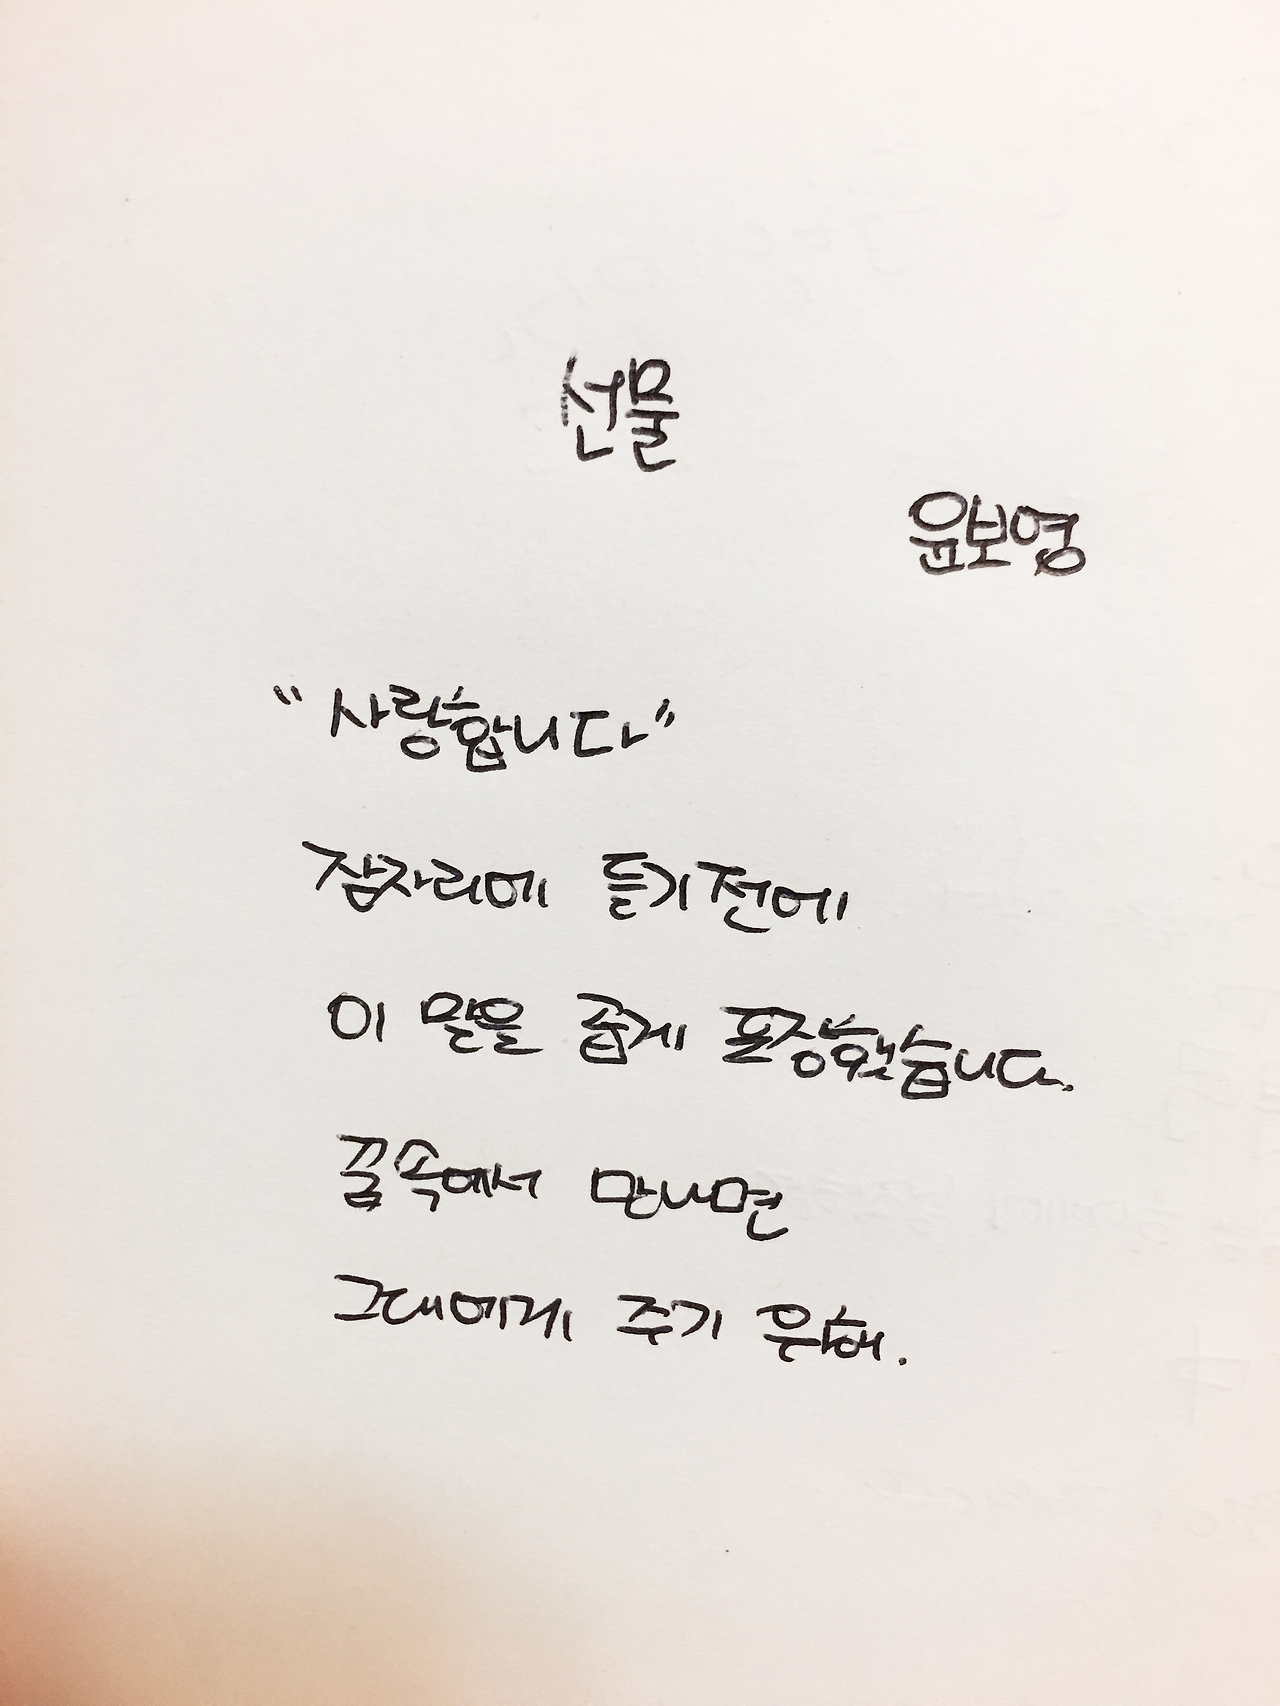 선물
윤보영
"사랑합니다"
잠자리에 들기전에
이 말을 곱게 포장했습니다.
꿈속에서 만나면
그대에게 주기 위해.